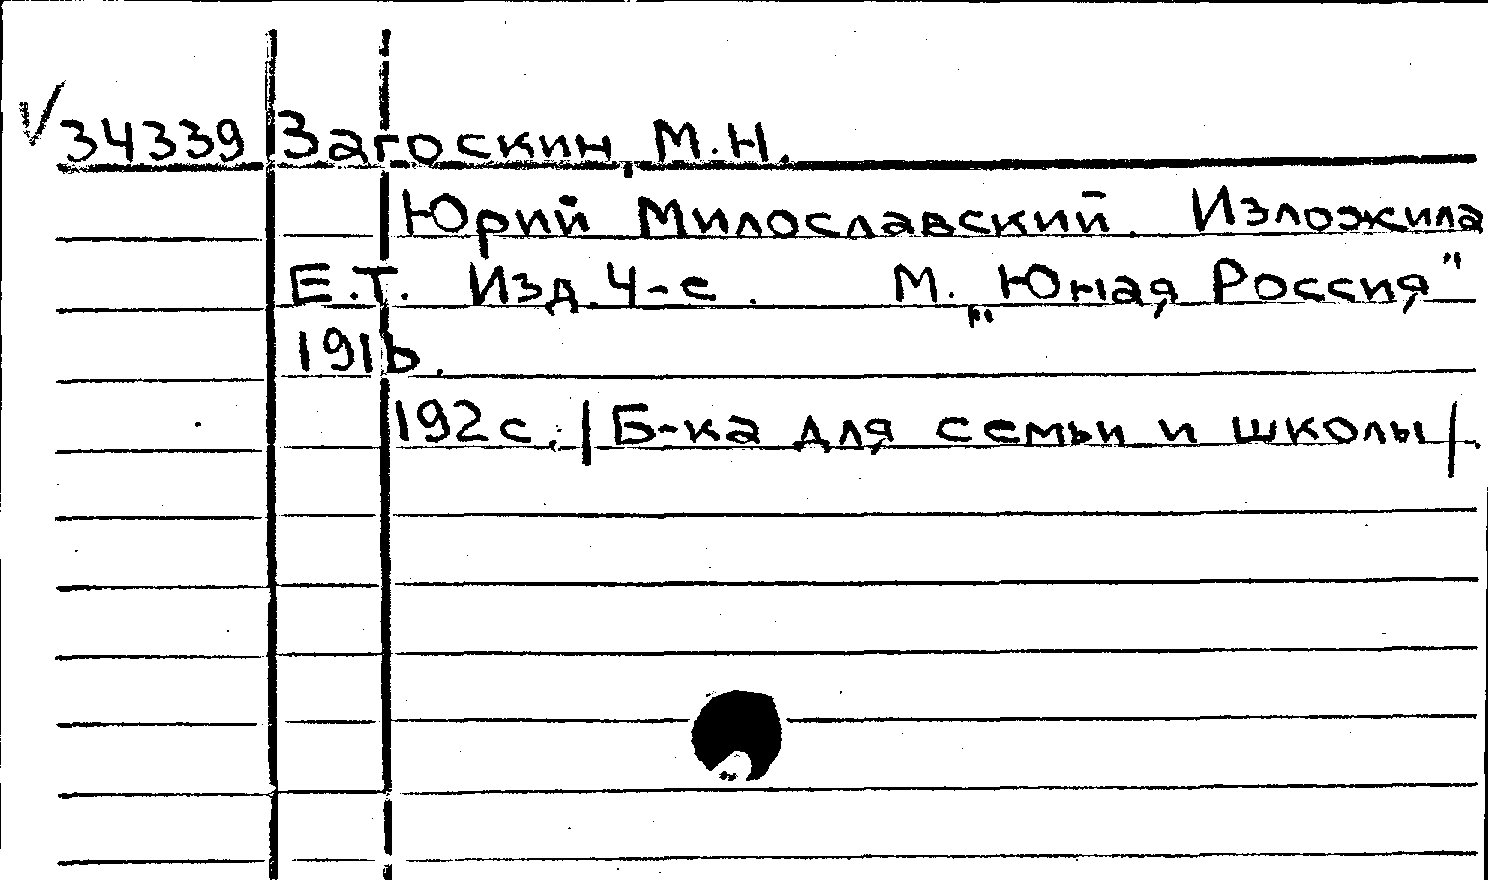 34339 Загоскин, М.Н.
Юрий Милославский. Изложила
Е.Т. Изд. 4-е. М. „Юная Россия"
1916.
192 с. |Б-ка для семьи и школы|.